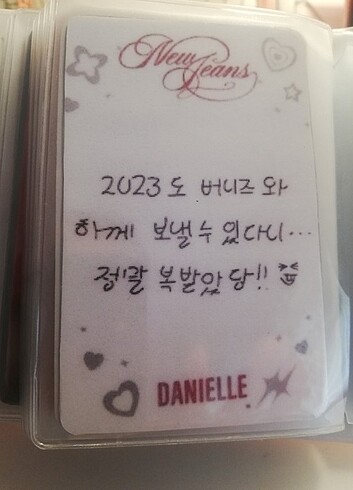 New Jeans
2023 도 버니즈 와
함께 보낼 수 있다니...
정말 복받았당!!
DANIELLE